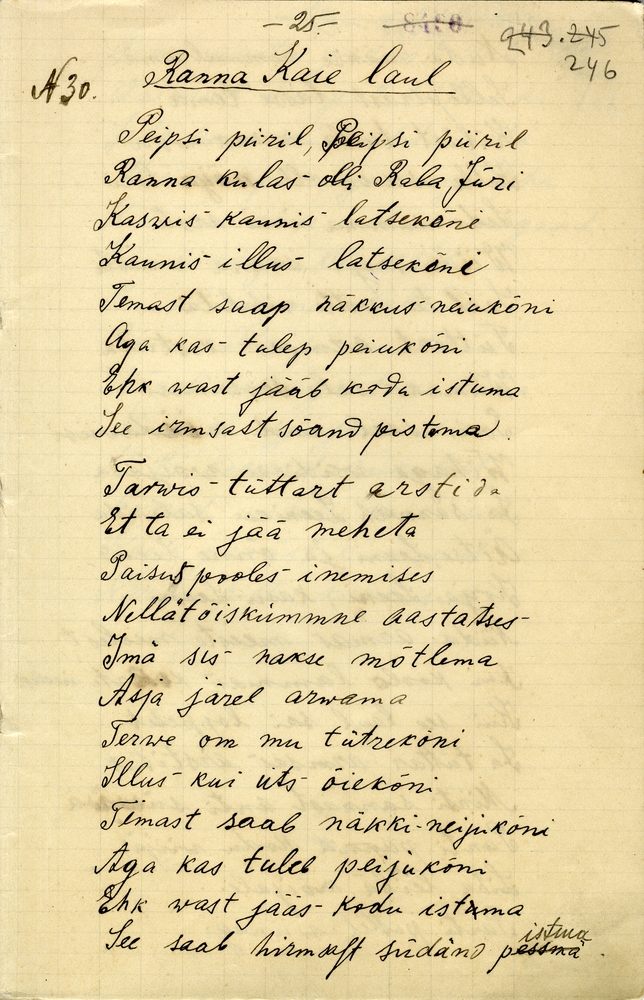 - 25 -
243. 245
246
N 30.
Ranna Kaie laul
Peipsi püril, Peipsi püril
Ranna kulas olli Raba Jüri
Kaswis kaunis latsekõni
Kaunis illus latsekõni
Temast saap näkkus neiukõni
Aga kas tulep peiukõni
Ehk wast jääb kodu istuma
See irmsast sõand pistma.
Tarwis tüttart arstida
Et ta ei jää meheta
Paisus pooles inemises
Nellätõiskümmne aastatses
Imä sis nakse mõtlema
Asja järel arwama
Terwe om mu tütrekõni
Illus kui üts õiekõni
Temast saab näkki-neijukõni
Aga kas tuleb peijukõni
Ehk wast jääs kodu istuma
See saab hirmsast südänd pessmä istma.